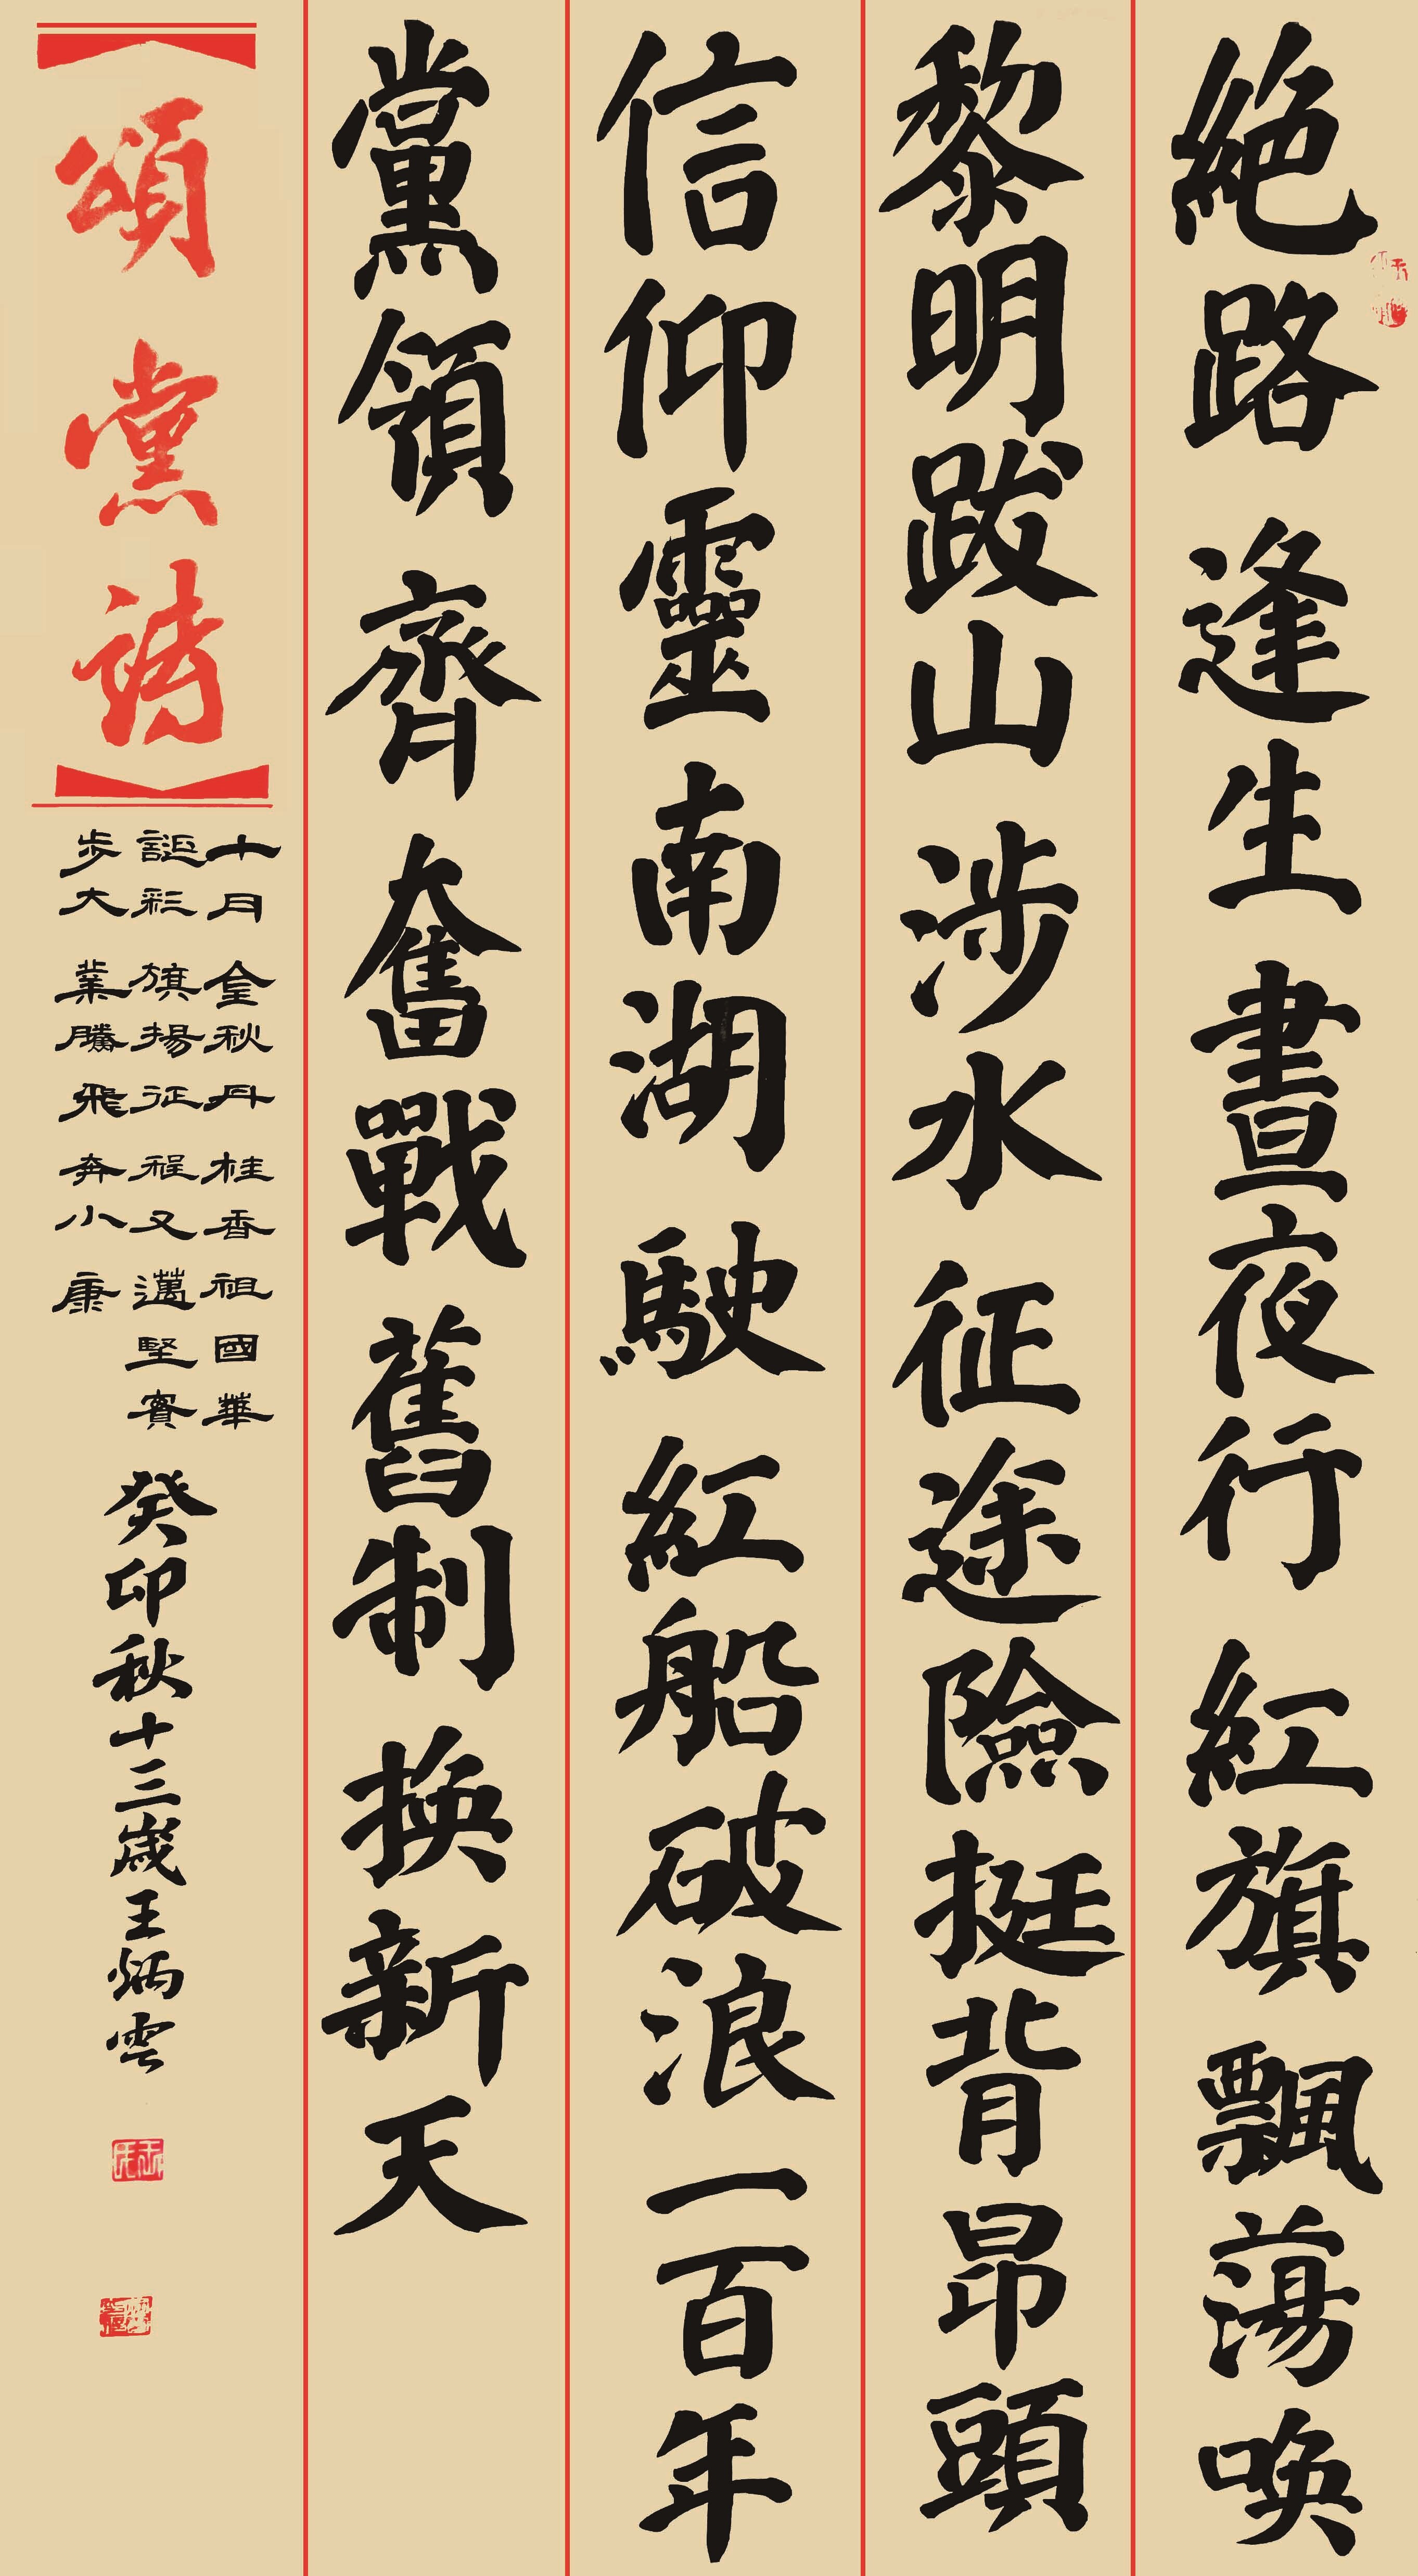 絕路逢生晝夜行紅旗飄蕩喚
黎明跋山涉水征途險挺背昂頭
信仰靈南湖駛紅船破浪一百年
黨領齊奮戰舊制換新天
頌黨詩
十月金秋丹桂香祖國華
誕彩旗揚征程又邁堅實
步大業騰飛奔小康
癸卯秋十三歲王炳雲